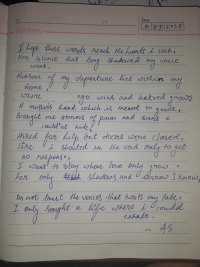 Notes
Date
I hope these words reach the hearts I seek,
For silence has long shadowed my voice
weak,
Reasons of my departure lies within my
home,
where ego wins and hatred grows
A mother's hand which is meant to guide,
Brought me storms of pain and scars I
couldn't hide
Asked for help but doors were closed,
Like I shouted in the void only to get
no response,
I want to stay where love only grow
For only shadows and sorrow I know,
Do not trust the voices that twist my fate,
I only sought a life where I could
exhale.
~ AS